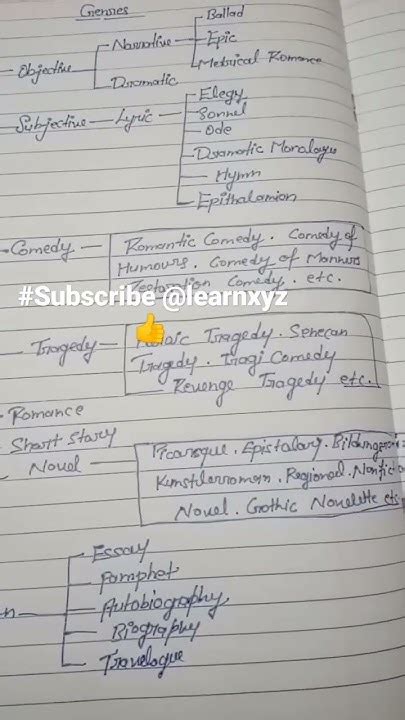 Genres
Objective — Narrative — Ballad
Epic
Metrical Romance
Dramatic
Subjective — Lyric — Elegy
Sonnel
Ode
Dramatic Monologue
Hymn
Epithalamion
Comedy — Romantic Comedy. Comedy of
Humours. Comedy of Manners
Comedy. etc.
#Subscribe @learnxyz
Tragedy — Tragedy. Senecan
Tragedy. Tragi Comedy
Revenge Tragedy etc.
Romance
Short Story
Novel — Picaresque. Epistolary.
Regional.
Novel. Gothic Novelette etc
Essay
Pamphet
Autobiography
Biography
Travelogue